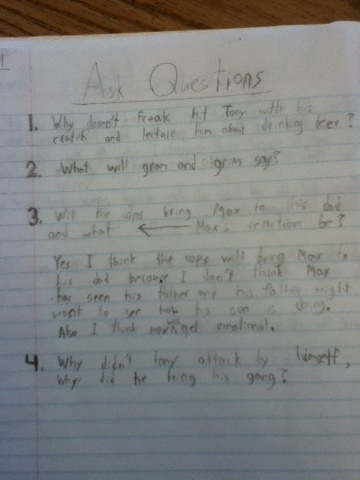 Ask Questions
1. Why doesn't Freak hit Tony with his
crutch and lecture him about drinking beer?
2. What will gram and grim say?
3. Will the cops bring Max to his dad
and what ← Max's reaction be?
Yes I think the cops will bring Max to
his dad because I don't think Max
has seen his father and his father might
want to see how his son is doing.
Also I think get emotional.
4. Why didn't tony attack by himself,
Why did he bring his gang?